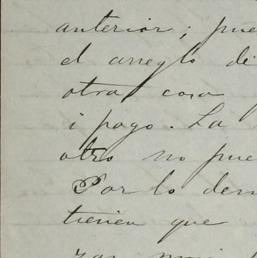 anterior; pue
el arreglo de
otra cosa
i pago. La
otro no pue
Por lo dem
tienen que